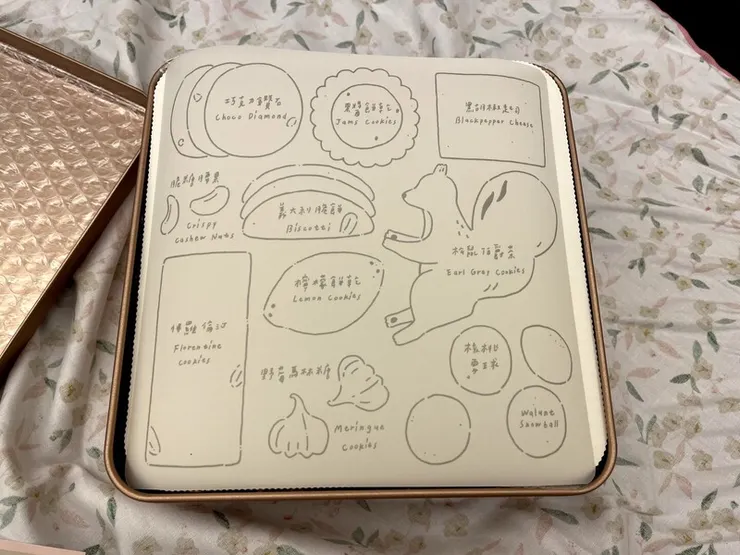 巧克力鑽石
Choco Diamond
果醬餅乾
Jams Cookies
黑胡椒起司
Blackpepper Cheese
脆糖腰果
Crispy
Cashew Nuts
義大利脆餅
Biscotti
松鼠伯爵茶
Earl Gray Cookies
檸檬餅乾
Lemon Cookies
佛羅倫汀
Florentine
Cookies
野莓馬林糖
Meringue
Cookies
核桃
雪球
Walune
Snowball